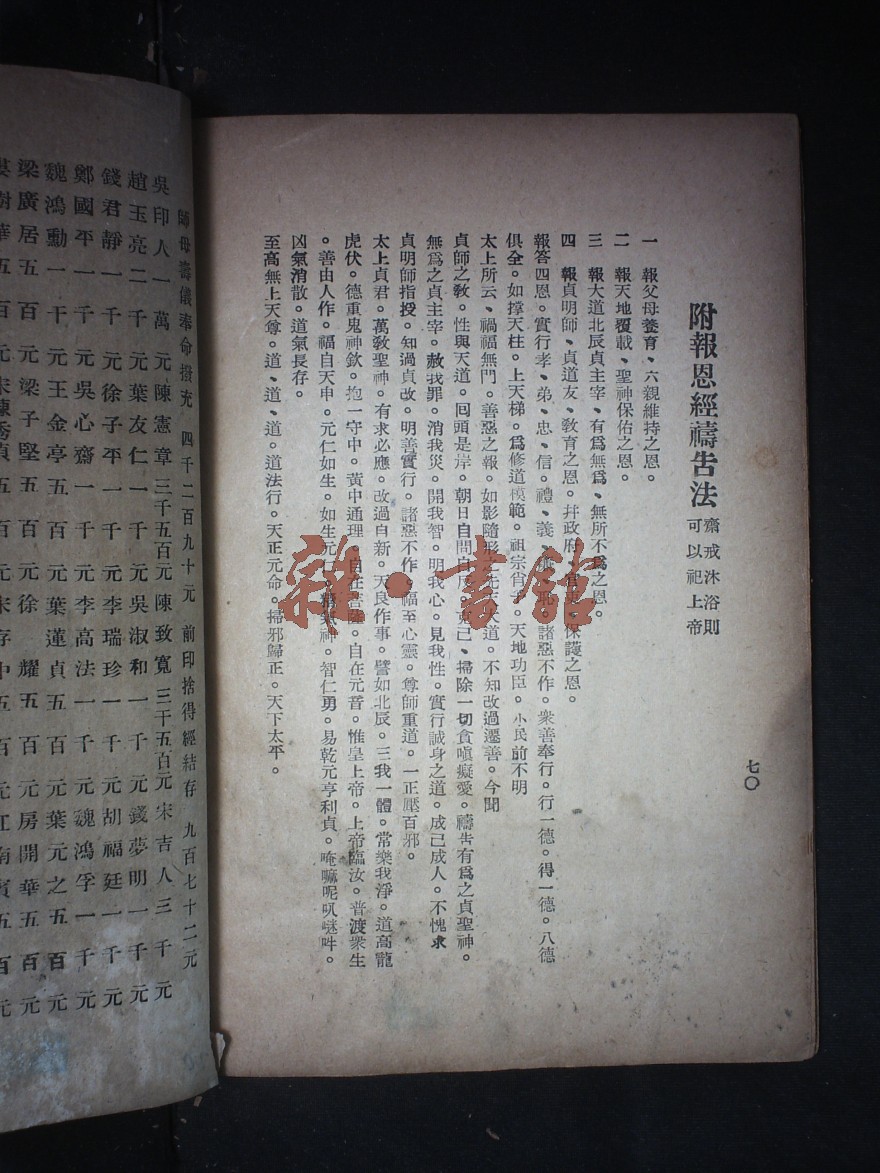 七〇
附報恩經禱告法
齋戒沐浴則
可以祀上帝
一　報父母養育、六親維持之恩。
二　報天地覆載、聖神保佑之恩。
三　報大道北辰貞主宰、有為無為、無所不為之恩。
四　報貞明師、貞道友、敎育之恩。幷政府 保護之恩。
報答四恩。實行孝、弟、忠、信。禮、義 諸惡不作。衆善奉行。行一德。得一德。八德
俱全。如撑天柱。上天梯。爲修道模範。祖宗肖子。天地功臣。小民前不明
太上所云、禍福無門。善惡之報。如影隨形 大道。不知改過遷善。今聞
貞師之敎。性與天道。囘頭是岸。朝日自問自 克己、掃除一切貪嗔癡愛。禱告有爲之貞聖神。
無爲之貞主宰。赦我罪。消我災。開我智。明我心。見我性。實行誠身之道。成己成人。不愧求
貞明師指授。知過貞改。明善實行。諸惡不作。福至心靈。尊師重道。一正壓百邪。
太上貞君。萬敎聖神。有求必應。改過自新。天良作事。譬如北辰。三我一體。常樂我淨。道高龍
虎伏。德重鬼神欽。抱一守中。黃中通理。自在菩薩。自在元音。惟皇上帝。上帝臨汝。普渡衆生
。善由人作。福自天申。元仁如生。如生元仁。精氣神。智仁勇。易乾元亨利貞。唵嘛呢叭𠺗吽。
凶氣消散。道氣長存。
至高無上天尊。道、道、道。道法行。天正元命。掃邪歸正。天下太平。
師母壽儀奉命撥充　四千二百九十元　前印捨得經結存　九百七十二元
吳印人一萬元陳憲章三千五百元陳致寬三千五百元宋吉人三千元
趙玉亮二千元葉友仁一千元吳淑和一千元錢夢明一千元
錢君靜一千元徐子平一千元李瑞珍一千元胡福廷一千元
鄭國平一千元吳心齋一千元李高法一千元魏鴻孚一千元
魏鴻勳一千元王金亭五百元葉蓮貞五百元葉元之五百元
梁廣居五百元梁子堅五百元徐　耀五百元房開華五百元
雜·書館